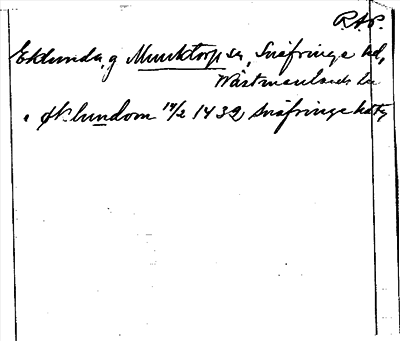 R.A.P.
Eklunda, g Munktorp sn, Snäfringe hd,
Wästmanlands län
i Æklundom 17/2 1432, Snäfringe häradh